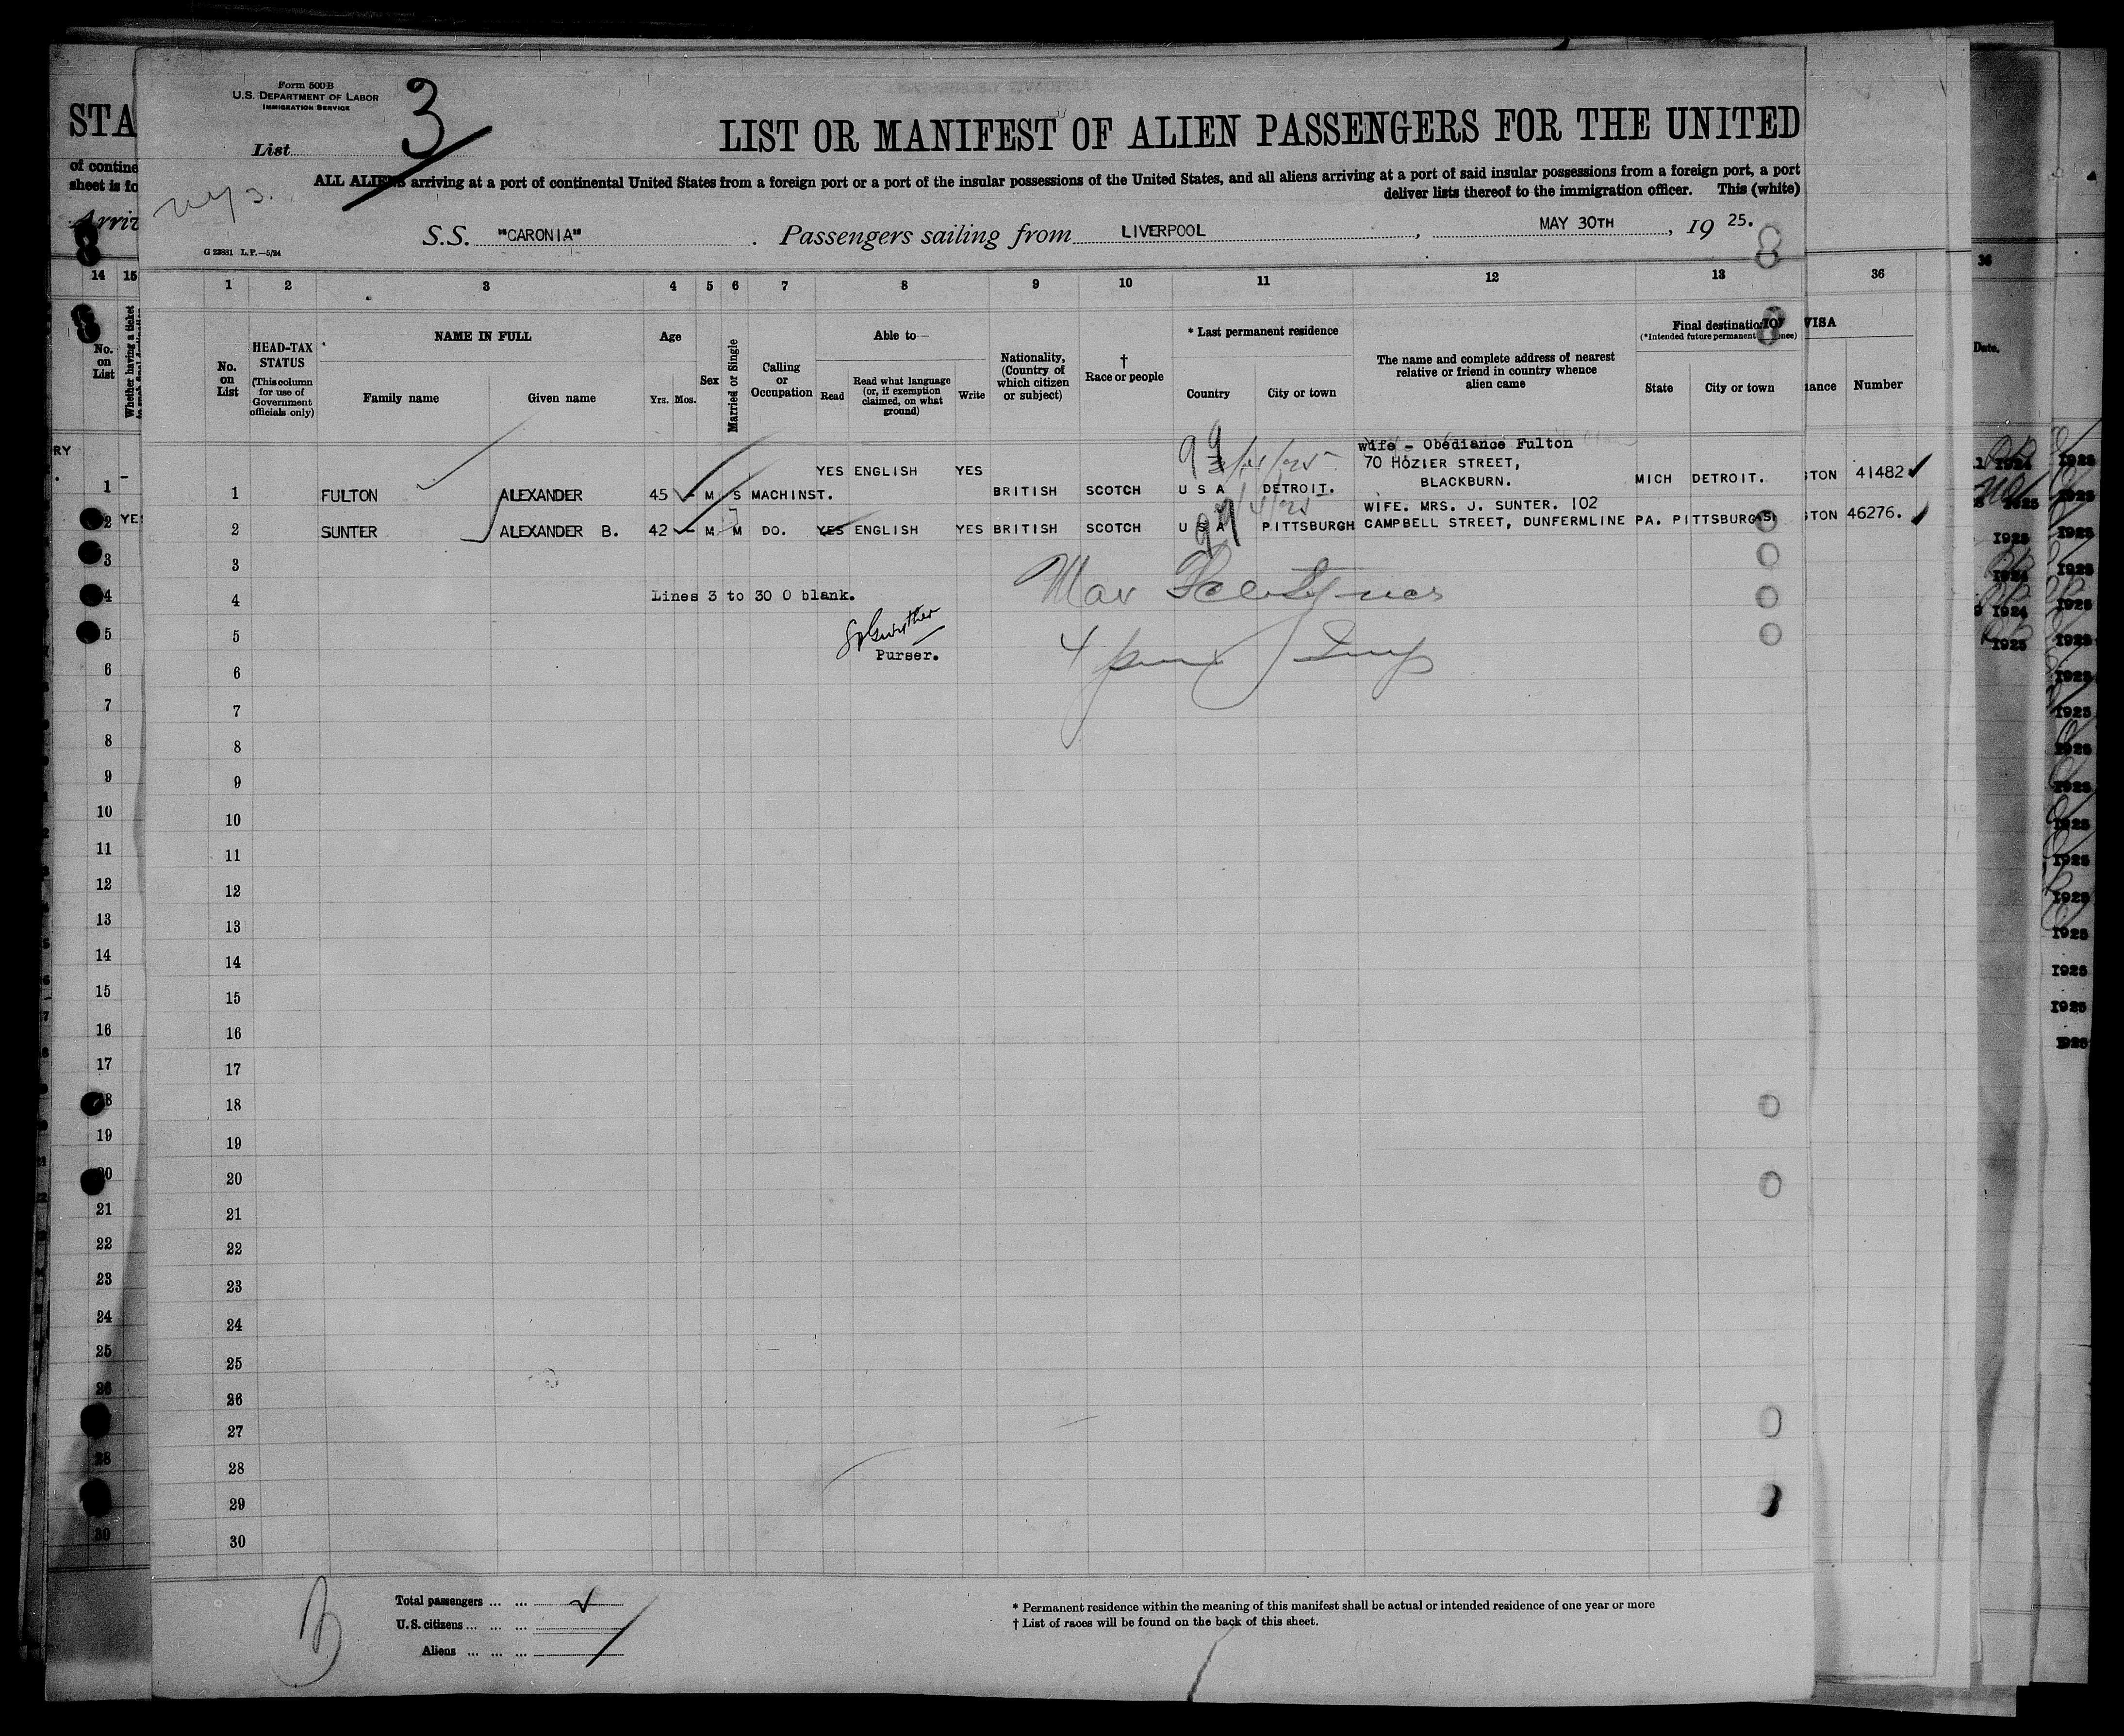 Form 500B
U.S. DEPARTMENT OF LABOR
IMMIGRATION SERVICE
List 3
LIST OR MANIFEST OF ALIEN PASSENGERS FOR THE UNITED
STA
ALL ALIENS arriving at a port of continental United States from a foreign port or a port of the insular possessions of the United States, and all aliens arriving at a port of said insular possessions from a foreign port, a port
deliver lists thereof to the immigration officer. This (white)
of contine
sheet is fo
Arriv
S.S. "CARONIA" . Passengers sailing from LIVERPOOL , MAY 30TH , 19 25.
G 23881 L.P.—5/24
14 15
1 2 3 4 5 6 7 8 9 10 11 12 13 36
No. on List
Whether having a ticket
No. on List
HEAD-TAX STATUS
(This column for use of Government officials only)
NAME IN FULL
Family name
Given name
Age
Yrs. Mos.
Sex
Married or Single
Calling or Occupation
Able to—
Read
Read what language (or, if exemption claimed, on what ground)
Write
Nationality, (Country of which citizen or subject)
† Race or people
* Last permanent residence
Country
City or town
The name and complete address of nearest relative or friend in country whence alien came
Final destination
(*Intended future permanent
State
City or town
VISA
Number
Date.
wife - Obediance Fulton
YES ENGLISH YES 70 HOZIER STREET,
1 FULTON ALEXANDER 45 - M S MACHINST. BRITISH SCOTCH U S A DETROIT. BLACKBURN. MICH DETROIT. STON 41482
WIFE. MRS. J. SUNTER. 102
2 SUNTER ALEXANDER B. 42 - M M DO. YES ENGLISH YES BRITISH SCOTCH U S A PITTSBURGH CAMPBELL STREET, DUNFERMLINE PA. PITTSBURG STON 46276.
3
4 Lines 3 to 30 0 blank.
5
Purser.
6
7
8
9
10
11
12
13
14
15
16
17
18
19
20
21
22
23
24
25
26
27
28
29
30
Total passengers ... ...
U.S. citizens ... ... ...
Aliens ... ... ...
* Permanent residence within the meaning of this manifest shall be actual or intended residence of one year or more
† List of races will be found on the back of this sheet.